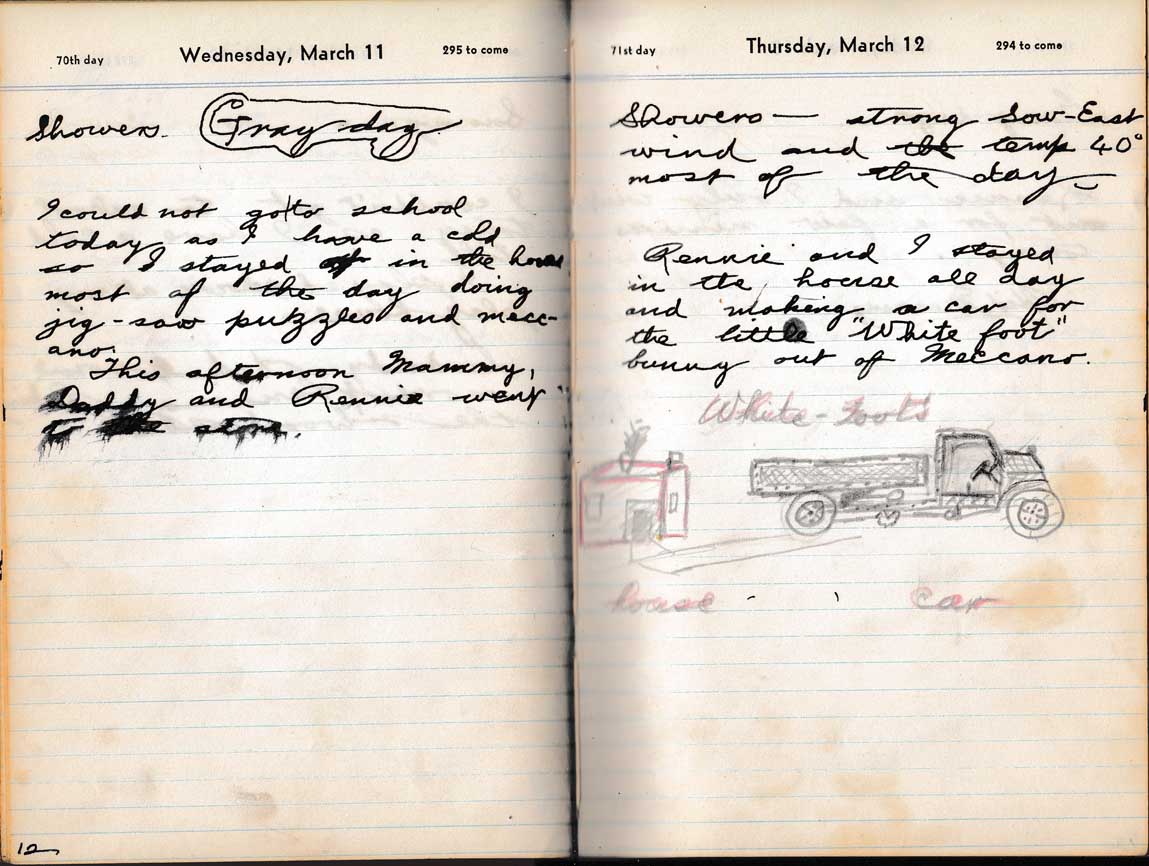 70th day Wednesday, March 11 295 to come
Showers. Gray day
I could not go to school
today as I have a cold
so I stayed in the house
most of the day doing
jig-saw puzzles and mecc-
ano.
This afternoon Mammy,
Daddy and Rennie went
to the store.
12
71st day Thursday, March 12 294 to come
Showers — strong Sow-East
wind and the temp 40°
most of the day
Rennie and I stayed
in the house all day
and making a car for
the little "White foot"
bunny out of Meccano.
White-Foots
house car